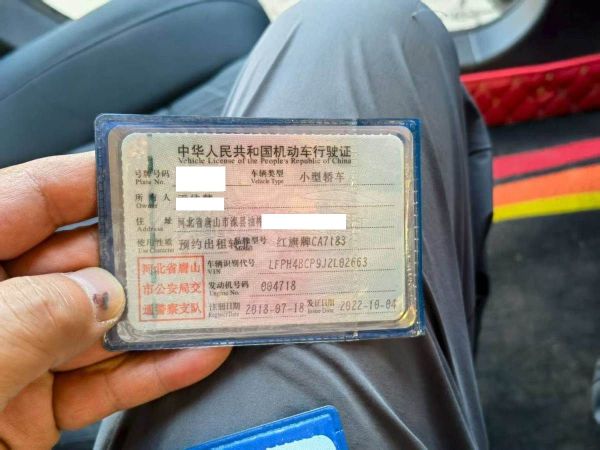 中华人民共和国机动车行驶证
Vehicle License of the People's Republic of China
号牌号码 车辆类型 小型轿车
Plate No. Vehicle Type
所有人
Owner
住址 河北省唐山市滦县油榨
Address
使用性质 预约出租转 品牌型号 红旗牌CA7183
Use Character Model
车辆识别代号 LFPH4BCP9J2L02663
VIN
发动机号码 004718
Engine No.
注册日期 2018-07-18 发证日期 2022-10-04
Register Date Issue Date
河北省唐山
市公安局交
通警察支队